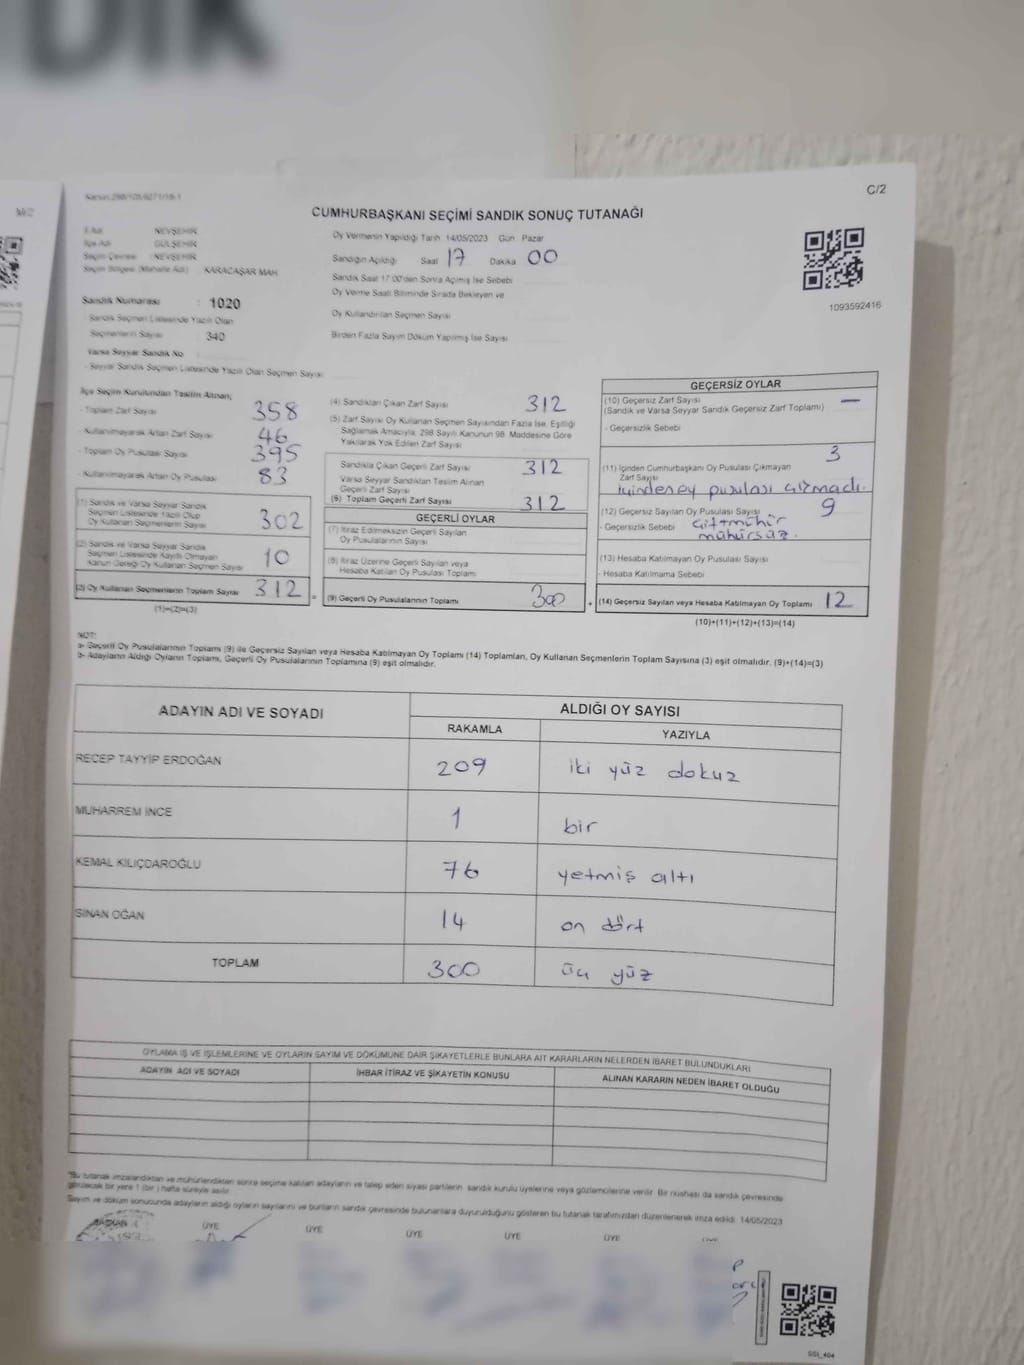 DIK
C/2
CUMHURBAŞKANI SEÇİMİ SANDIK SONUÇ TUTANAĞI
İl Adı NEVŞEHİR
İlçe Adı GÜLŞEHİR
Seçim Çevresi : NEVŞEHİR
Seçim Bölgesi (Mahalle Adı) KARACAŞAR MAH
Sandık Numarası : 1020
- Sandık Seçmen Listesinde Yazılı Olan
Seçmenlerin Sayısı : 340
Varsa Seyyar Sandık No :
- Seyyar Sandık Seçmen Listesinde Yazılı Olan Seçmen Sayısı
Oy Vermenin Yapıldığı Tarih 14/05/2023 Gün Pazar
Sandığın Açıldığı Saat 17 Dakika 00
Sandık Saat 17.00'den Sonra Açılmış İse Sebebi
Oy Verme Saati Bitiminde Sırada Bekleyen ve
Oy Kullandırılan Seçmen Sayısı
Birden Fazla Sayım Döküm Yapılmış İse Sayısı
1093592416
İlçe Seçim Kurulundan Teslim Alınan;
- Toplam Zarf Sayısı 358
- Kullanılmayarak Artan Zarf Sayısı 46
- Toplam Oy Pusulası Sayısı 395
- Kullanılmayarak Artan Oy Pusulası 83
(1) Sandık ve Varsa Seyyar Sandık
Seçmen Listesinde Yazılı Olup
Oy Kullanan Seçmenlerin Sayısı 302
(2) Sandık ve Varsa Seyyar Sandık
Seçmen Listesinde Kayıtlı Olmayan
Kanun Gereği Oy Kullanan Seçmen Sayısı 10
(3) Oy Kullanan Seçmenlerin Toplam Sayısı 312 =
(1)+(2)=(3)
(4) Sandıktan Çıkan Zarf Sayısı 312
(5) Zarf Sayısı Oy Kullanan Seçmen Sayısından Fazla İse, Eşitliği
Sağlamak Amacıyla, 298 Sayılı Kanunun 98. Maddesine Göre
Yakılarak Yok Edilen Zarf Sayısı
Sandıkta Çıkan Geçerli Zarf Sayısı 312
Varsa Seyyar Sandıktan Teslim Alınan
Geçerli Zarf Sayısı
(6) Toplam Geçerli Zarf Sayısı 312
GEÇERLİ OYLAR
(7) İtiraz Edilmeksizin Geçerli Sayılan
Oy Pusulalarının Sayısı
(8) İtiraz Üzerine Geçerli Sayılan veya
Hesaba Katılan Oy Pusulası Toplamı
(9) Geçerli Oy Pusulalarının Toplamı 300 +
GEÇERSİZ OYLAR
(10) Geçersiz Zarf Sayısı —
(Sandık ve Varsa Seyyar Sandık Geçersiz Zarf Toplamı)
- Geçersizlik Sebebi
3
(11) İçinden Cumhurbaşkanı Oy Pusulası Çıkmayan
Zarf Sayısı
İçinden oy pusulası çıkmadı.
(12) Geçersiz Sayılan Oy Pusulası Sayısı 9
- Geçersizlik Sebebi Çift mühür
mühürsüz.
(13) Hesaba Katılmayan Oy Pusulası Sayısı
- Hesaba Katılmama Sebebi
(14) Geçersiz Sayılan veya Hesaba Katılmayan Oy Toplamı 12
(10)+(11)+(12)+(13)=(14)
NOT:
a- Geçerli Oy Pusulalarının Toplamı (9) ile Geçersiz Sayılan veya Hesaba Katılmayan Oy Toplamı (14) Toplamları, Oy Kullanan Seçmenlerin Toplam Sayısına (3) eşit olmalıdır. (9)+(14)=(3)
b- Adayların Aldığı Oyların Toplamı, Geçerli Oy Pusulalarının Toplamına (9) eşit olmalıdır.
ADAYIN ADI VE SOYADI ALDIĞI OY SAYISI
RAKAMLA YAZIYLA
RECEP TAYYİP ERDOĞAN 209 iki yüz dokuz
MUHARREM İNCE 1 bir
KEMAL KILIÇDAROĞLU 76 yetmiş altı
SİNAN OĞAN 14 on dört
TOPLAM 300 üç yüz
OYLAMA İŞ VE İŞLEMLERİNE VE OYLARIN SAYIM VE DÖKÜMÜNE DAİR ŞİKAYETLERLE BUNLARA AİT KARARLARIN NELERDEN İBARET BULUNDUKLARI
ADAYIN ADI VE SOYADI İHBAR İTİRAZ VE ŞİKAYETİN KONUSU ALINAN KARARIN NEDEN İBARET OLDUĞU
*Bu tutanak imzalandıktan ve mühürlendikten sonra seçime katılan adayların ve talep eden siyasi partilerin sandık kurulu üyelerine veya gözlemcilerine verilir. Bir nüshası da sandık çevresinde
görülecek bir yere 1 (bir) hafta süreyle asılır.
Sayım ve döküm sonucunda adayların aldığı oyların sayılarını ve bunların sandık çevresinde bulunanlara duyurulduğunu gösteren bu tutanak tarafımızdan düzenlenerek imza edildi. 14/05/2023
BAŞKAN ÜYE ÜYE ÜYE ÜYE ÜYE ÜYE